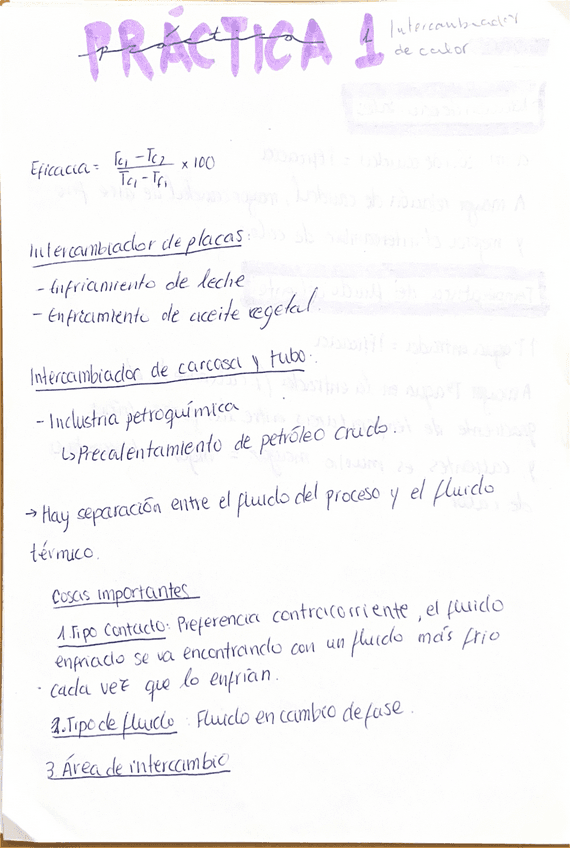 PRÁCTICA 1
práctica 1
Intercambiador
de calor
Eficacia = (Tc1 - Tc2) / (Tc1 - Tf1) x 100
Intercambiador de placas:
- Enfriamiento de leche
- Enfriamiento de aceite vegetal.
Intercambiador de carcasa y tubo:
- Industria petroquímica
↳ Precalentamiento de petróleo crudo.
→ Hay separación entre el fluido del proceso y el fluido
térmico.
Cosas importantes
1. Tipo Contacto: Preferencia contracorriente, el fluido
enfriado se va encontrando con un fluido más frío
cada vez que lo enfrían.
2. Tipo de fluido: Fluido en cambio de fase.
3. Área de intercambio